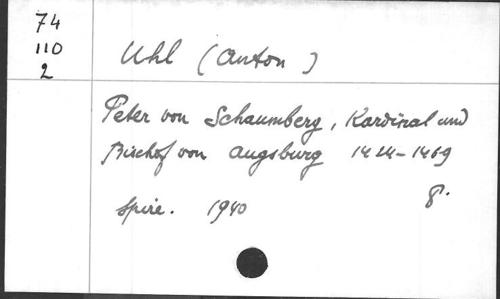 74
110
2
Uhl (Anton)
Peter von Schaumberg, Kardinal und
Bischof von Augsburg 1424-1469
Spire. 1940 8.